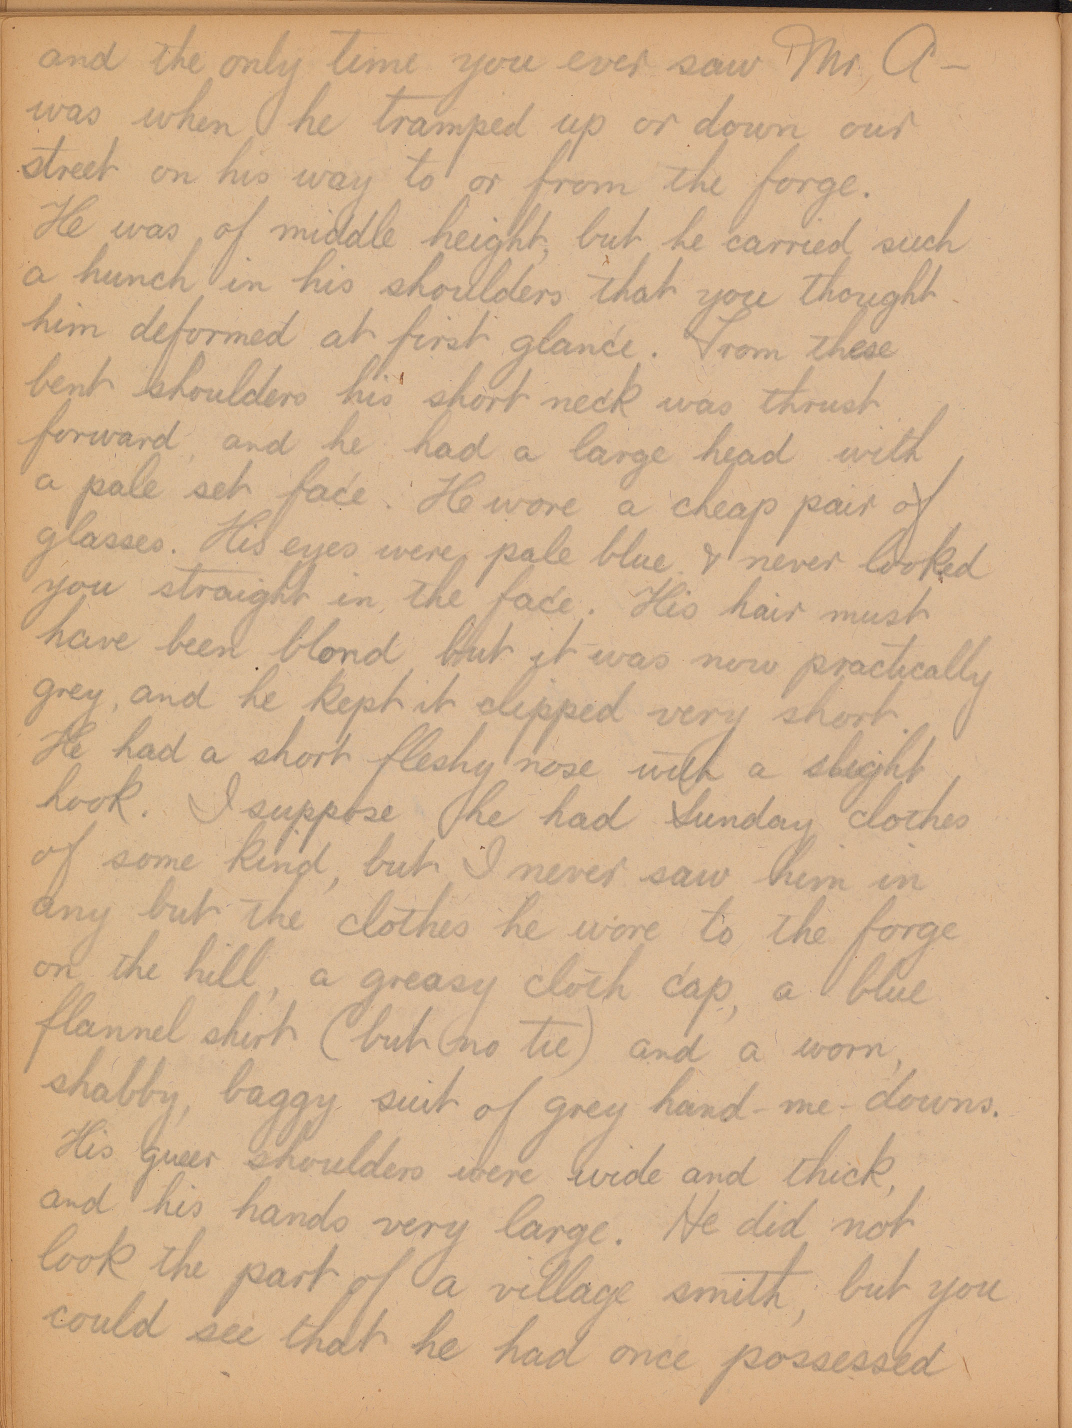 and the only time you ever saw Mr, A—
was when he tramped up or down our
street on his way to or from the forge.
He was of middle height, but he carried such
a hunch in his shoulders that you thought
him deformed at first glance. From these
bent shoulders his short neck was thrust
forward, and he had a large head with
a pale set face. He wore a cheap pair of
glasses. His eyes were pale blue & never looked
you straight in the face. His hair must
have been blond but it was now practically
grey, and he kept it clipped very short.
He had a short fleshy nose with a slight
hook. I suppose he had Sunday clothes
of some kind, but I never saw him in
any but the clothes he wore to the forge
on the hill, a greasy cloth cap, a blue
flannel shirt (but no tie) and a worn,
shabby, baggy suit of grey hand-me-downs.
His queer shoulders were wide and thick,
and his hands very large. He did not
look the part of a village smith, but you
could see that he had once possessed